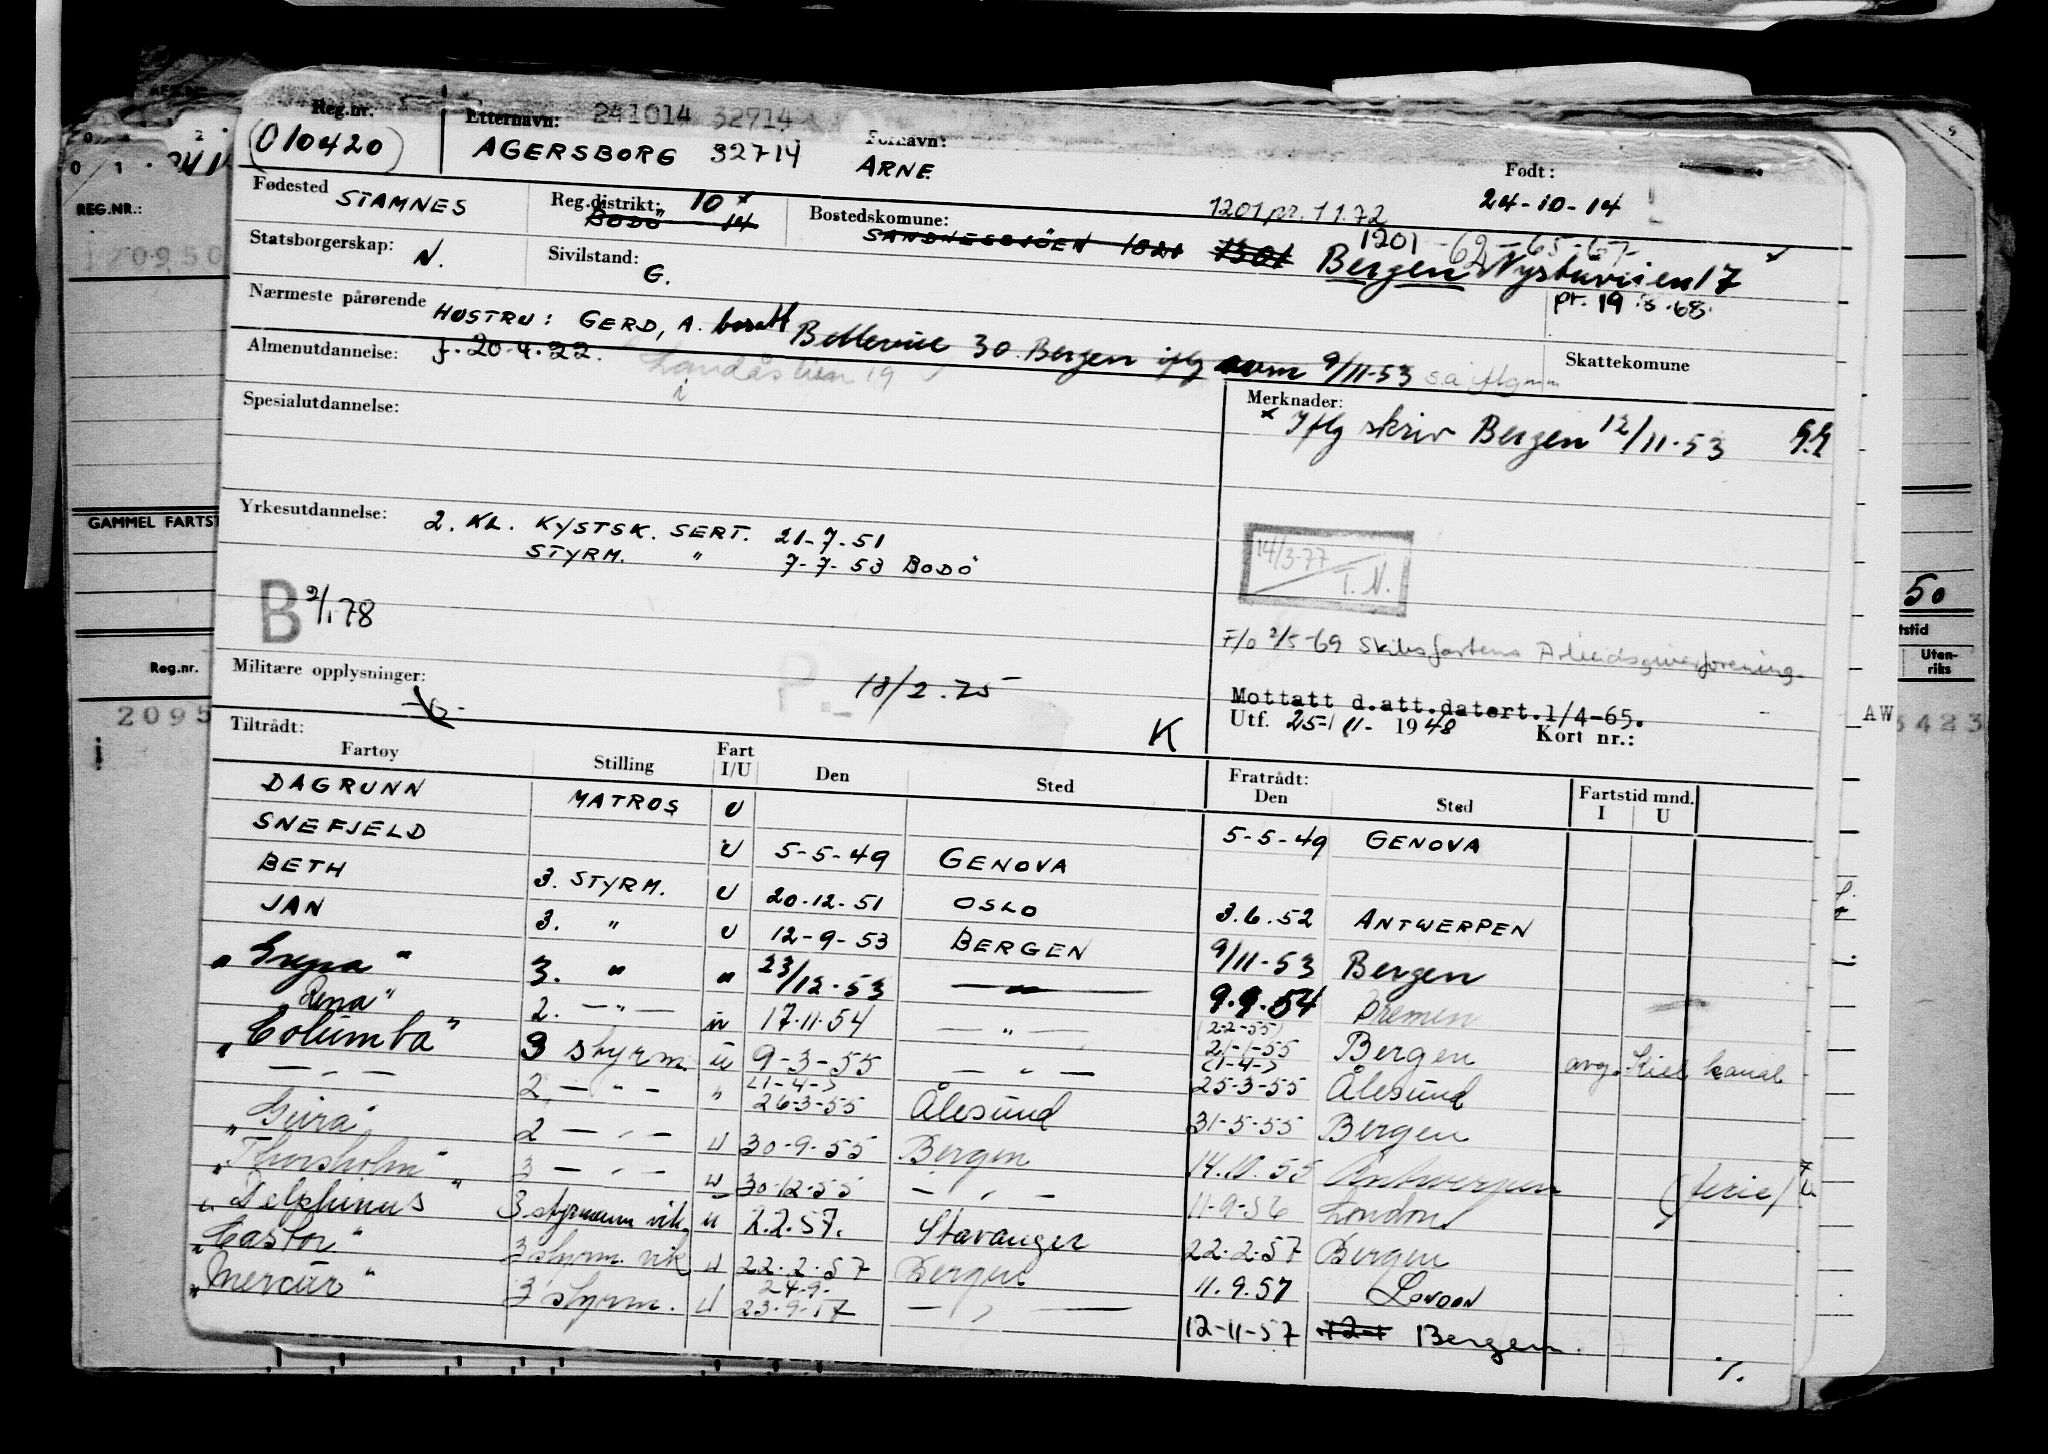 Reg.nr. Etternavn: 241014 32714 Fornavn: Født:
010420 AGERSBORG 32714 ARNE 24-10-14
Fødested STAMNES Reg.distrikt: 10 Bostedskomune: 1201 pr. 1 1.72
BODÖ 14 SANDNESSJÖEN 1820 1301 1201 -62-65-67-
Bergen Nystuveien 17
Statsborgerskap: N. Sivilstand: G. pr. 19.8.68.
Nærmeste pårørende HUSTRU: GERD, A. Bellevue 30 Bergen iflg 9/11-53
Almenutdannelse: f. 20-4-22. Skattekomune
19
Spesialutdannelse: Merknader:
x Iflg skriv Bergen 12/11-53
Yrkesutdannelse: 2. KL. KYSTSK. SERT. 21-7-51
STYRM. " 7-7-53 BODÖ
14/3-77
T.N.
B 2/1 78
F/o 2/5-69 Skibsfartens Arbeidsgiverforening.
Militære opplysninger: P. 18/2.75
Mottatt d.att.datert.1/4-65.
K Utf. 25-11-1948 Kort nr.:
Tiltrådt: Fratrådt:
Fartøy Stilling Fart I/U Den Sted Den Sted Fartstid mnd. I U
DAGRUNN MATROS U 5-5-49 GENOVA
SNEFJELD U 5-5-49 GENOVA
BETH 3. STYRM. U 20.12.51 OSLO 3.6.52 ANTWERPEN
JAN 3. " U 12-9-53 BERGEN 9/11-53 Bergen
3. " " 23/12.53 — " — 9.9.54 Bremen
"Rena" 2. — " — 17.11.54 — " — (22-2-55)
21-1-55 Bergen avg. Kiel kanal
"Columba" 3 styrm. u 9-3-55 — " — (1-4-)
25-3-55 Ålesund
— " — 2 — " — " (1-4-)
26-3-55 Ålesund 31-5-55 Bergen
2 — " — U 30-9-55 Bergen 14.10.55 Antwerpen (ferie)
"Thorsholm" 3 — " — U 30-12-55 — " — 11-9-56 London
"Delphinus" 3 styrmann vik. u 2.2.57. Stavanger 22.2.57 Bergen
"Castor" 3 styrm. vik U 22.2.57 Bergen 11.9.57 LONDON
"Mercur" 3 styrm. U 24-9-
23-9-57 — " — 12-11-57 Bergen
REG.NR.:
GAMMEL FARTST
Reg.nr.
2095
50
Uten-
riks
AW